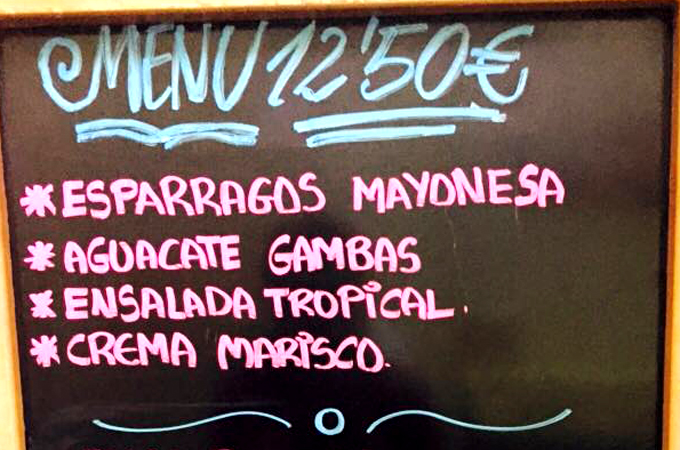 MENU 12'50€
* ESPARRAGOS MAYONESA
* AGUACATE GAMBAS
* ENSALADA TROPICAL.
* CREMA MARISCO.